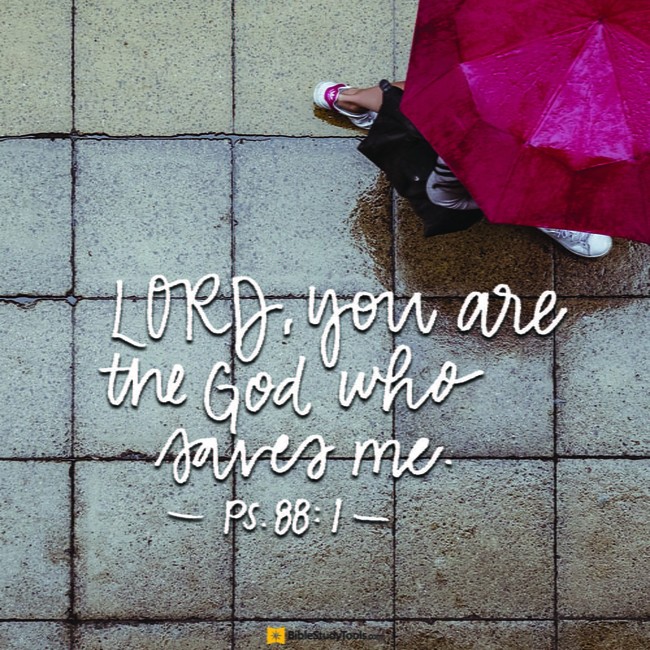 LORD, you are
the God who
saves me.
— PS. 88:1 —
BibleStudyTools.com